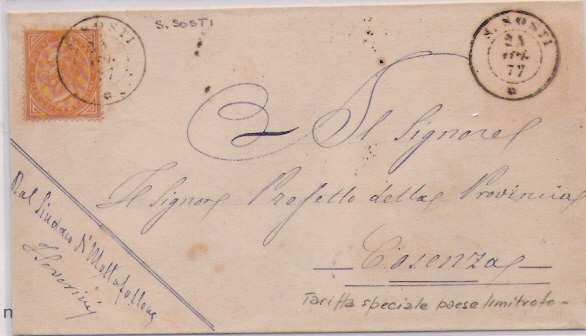 S. SOSTI
S. SOSTI
S. SOSTI
77
Il Signore
Il Signore Prefetto della Provincia
Cosenza
Dal Sindaco di Mottafollone
Tariffa speciale paese limitrofo -
n